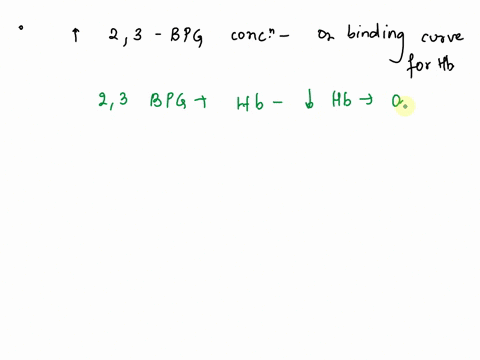 ° ↑ 2,3 - BPG concⁿ - on binding curve
for Hb
2,3 BPG + Hb - ↓ Hb → O